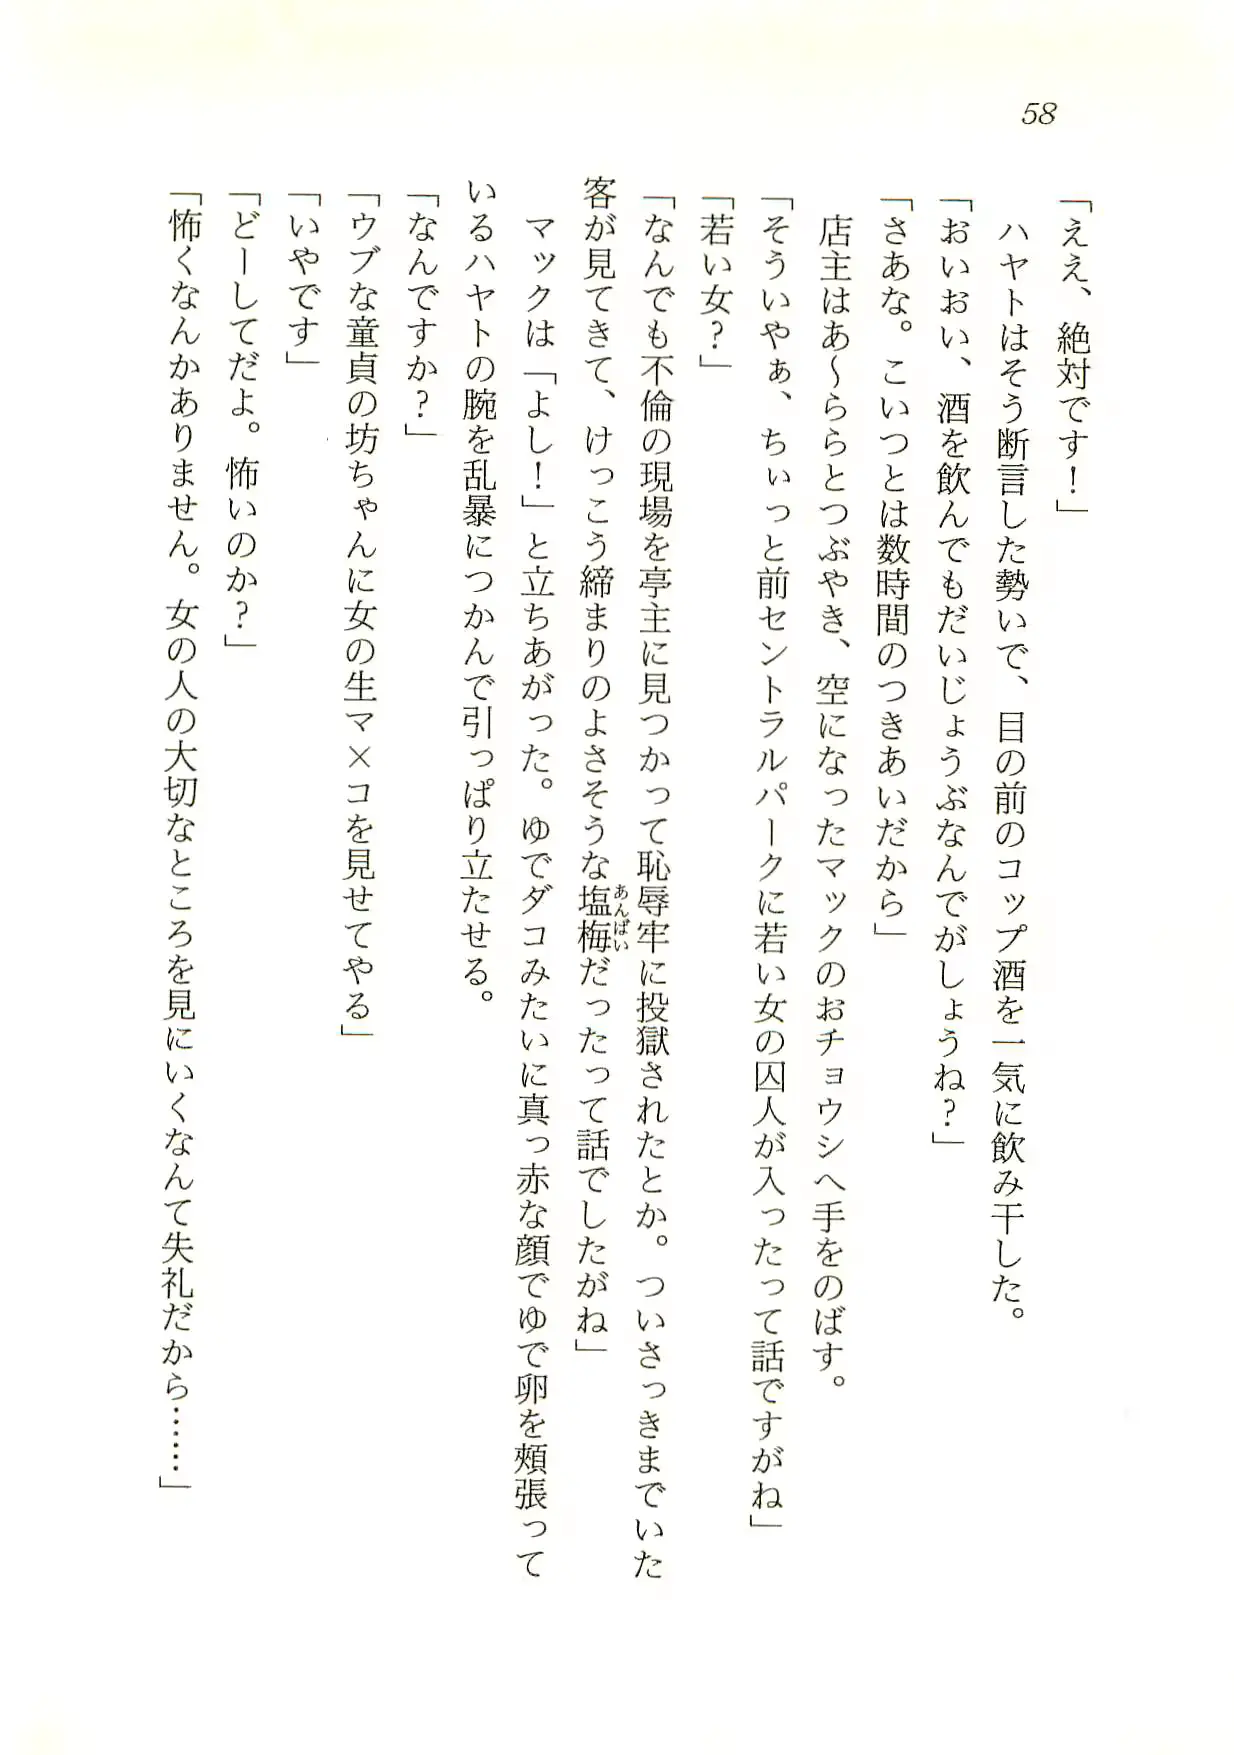 58
「ええ、絶対です！」
ハヤトはそう断言した勢いで、目の前のコップ酒を一気に飲み干した。
「おいおい、酒を飲んでもだいじょうぶなんでがしょうね？」
「さあな。こいつとは数時間のつきあいだから」
店主はあ～ららとつぶやき、空になったマックのおチョウシへ手をのばす。
「そういやぁ、ちぃっと前セントラルパークに若い女の囚人が入ったって話ですがね」
「若い女？」
「なんでも不倫の現場を亭主に見つかって恥辱牢に投獄されたとか。ついさっきまでいた
客が見てきて、けっこう締まりのよさそうな塩梅だったって話でしたがね」
あんばい
マックは「よし！」と立ちあがった。ゆでダコみたいに真っ赤な顔でゆで卵を頬張って
いるハヤトの腕を乱暴につかんで引っぱり立たせる。
「なんですか？」
「ウブな童貞の坊ちゃんに女の生マ×コを見せてやる」
「いやです」
「どーしてだよ。怖いのか？」
「怖くなんかありません。女の人の大切なところを見にいくなんて失礼だから……」